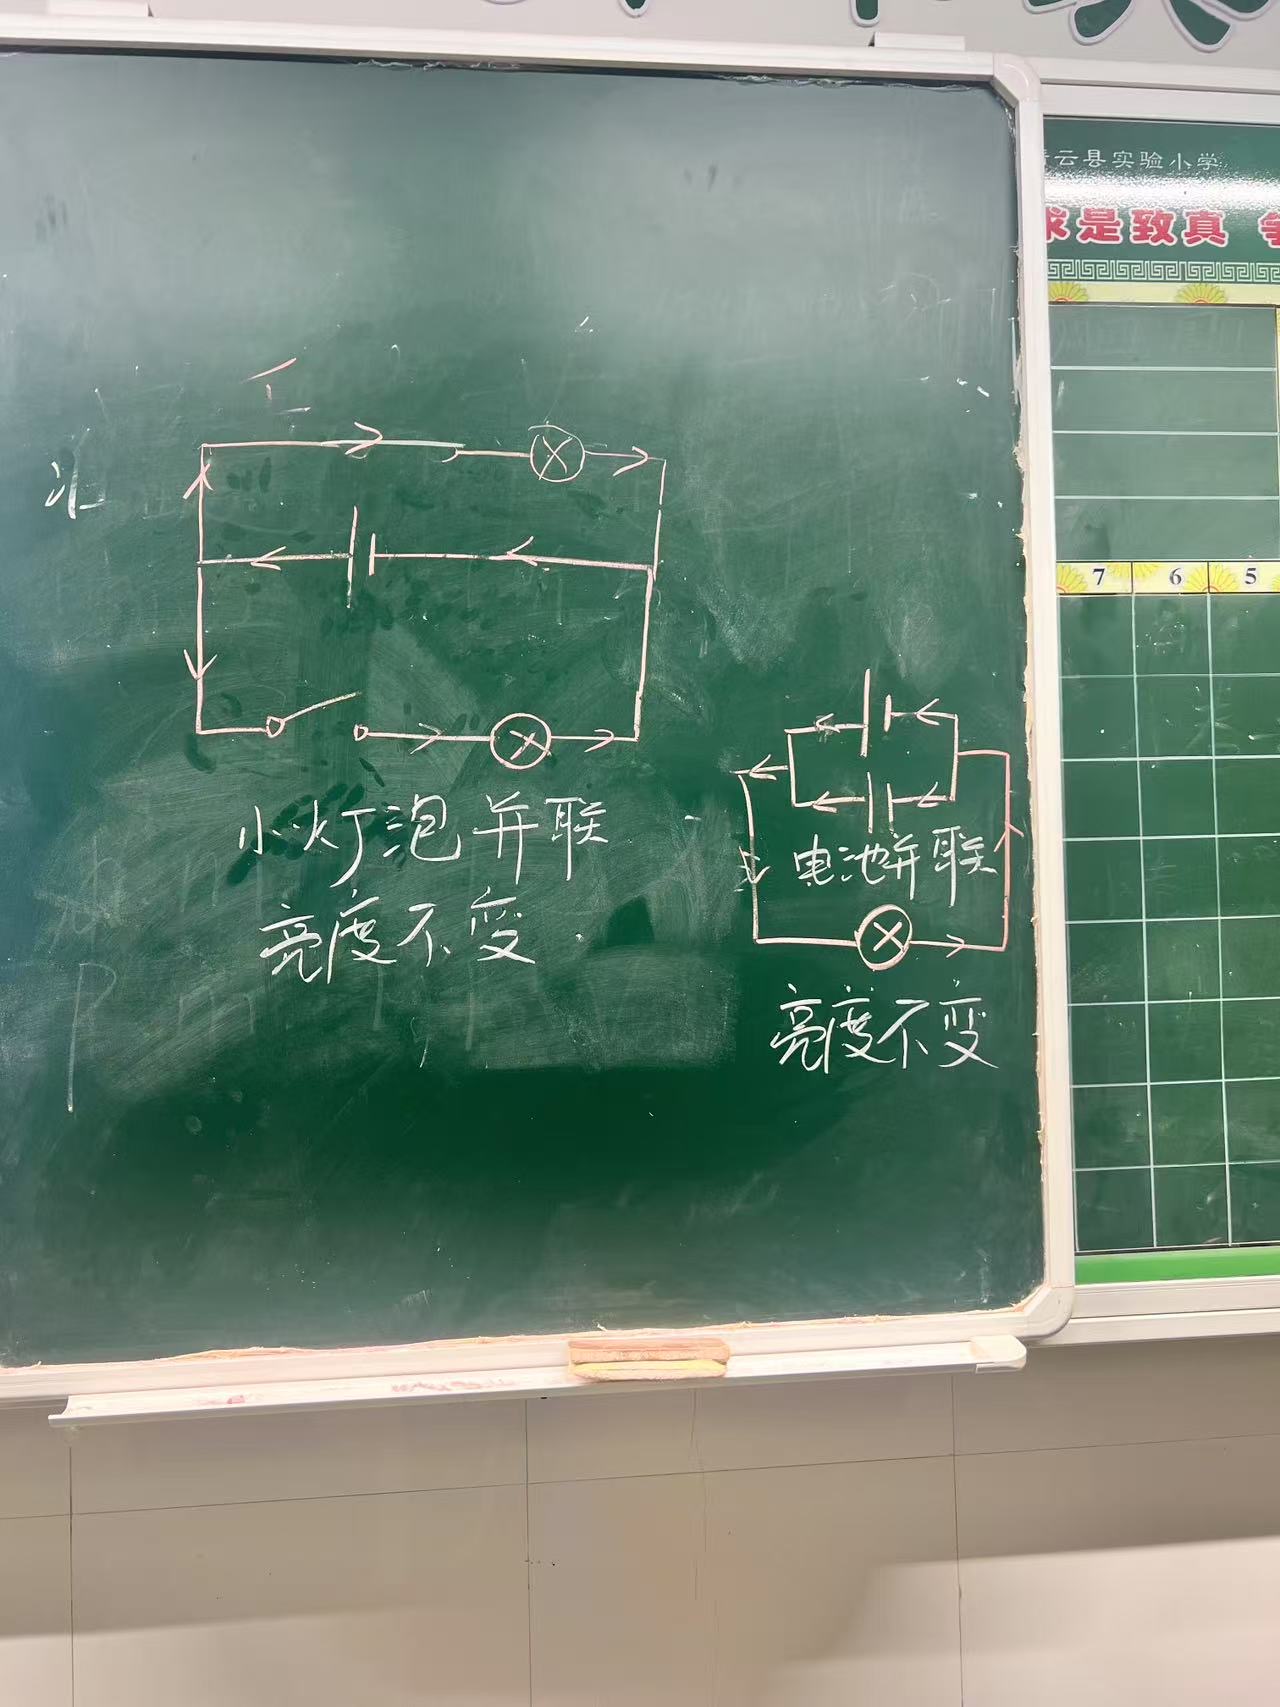 云县实验小学
求是致真
7 6 5
小灯泡并联
亮度不变
电池并联
亮度不变